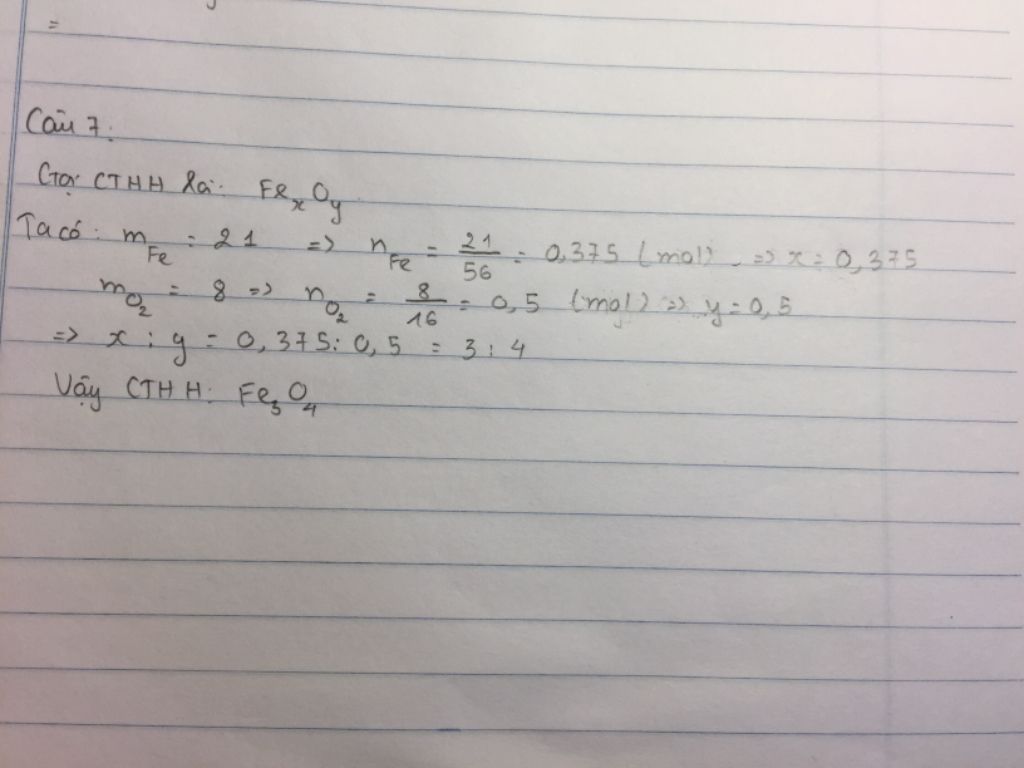 =
Câu 7:
Gọi CTHH là: FexOy
Ta có: mFe = 21 => nFe = 21/56 = 0,375 (mol) => x = 0,375
mO2 = 8 => nO2 = 8/16 = 0,5 (mol) => y = 0,5
=> x : y = 0,375 : 0,5 = 3 : 4
Vậy CTHH: Fe3O4